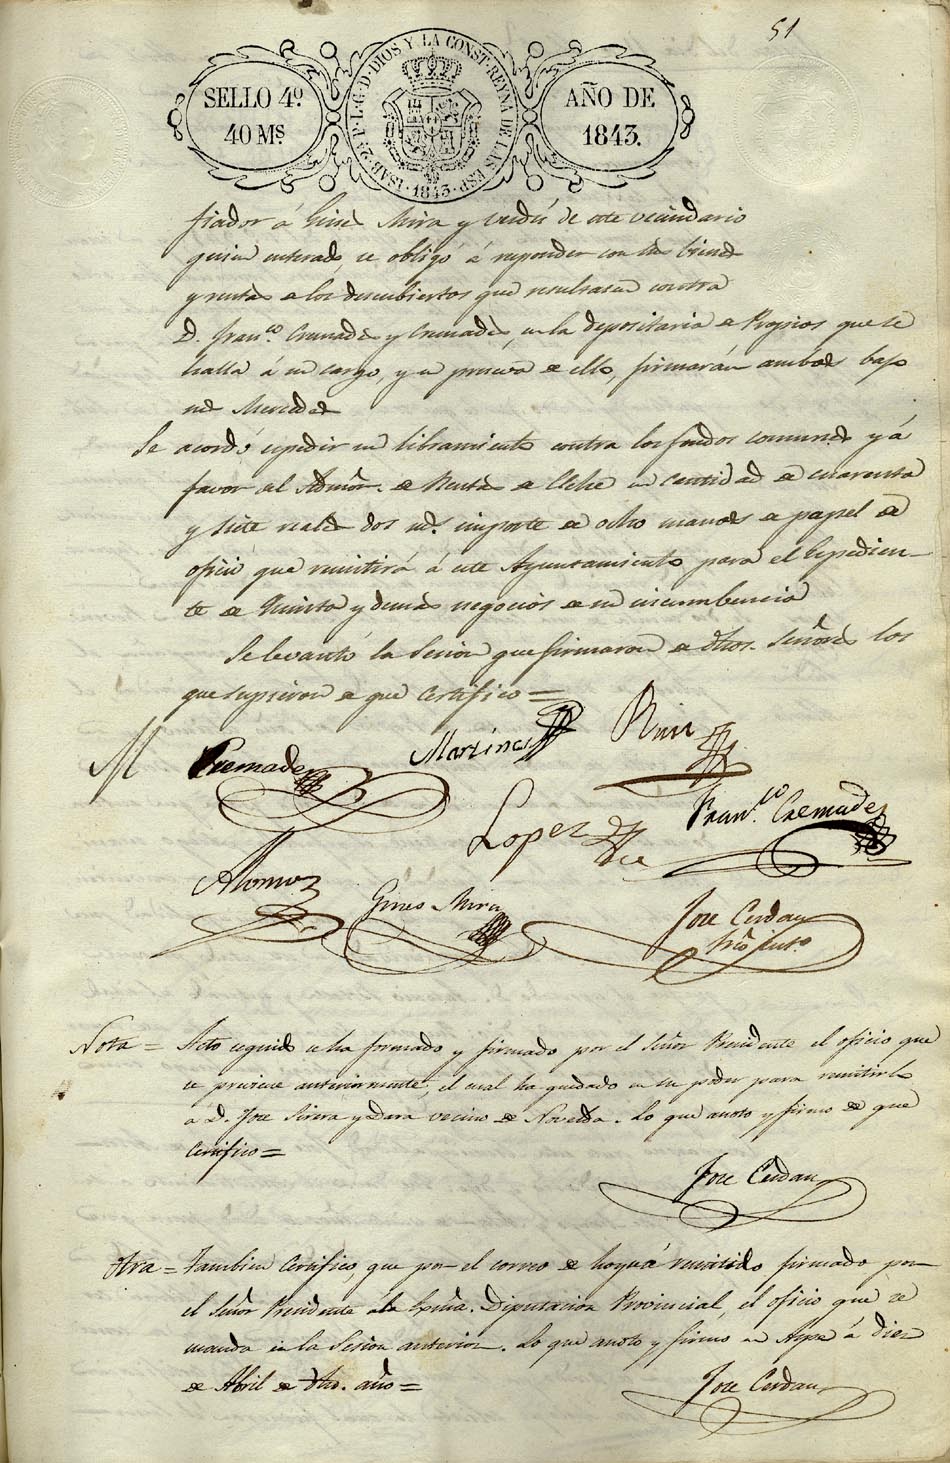 51
SELLO 4º
40 Ms.
ISAB. 2ª P. L. G. D. DIOS Y LA CONST. REYNA DE LAS ESP. 1843
AÑO DE
1843.
fiador á Gines Mira y Verdú de este vecindario
quien enterado, se obligó á responder con sus bienes
y rentas a los descubiertos que resultasen contra
D. Franco. Cremades y Cremades, en la depositaria de Propios que se
halla á su cargo, y en prueva de ello, firmarán ambos bajo
sus Mercedes
Se acordó espedir un libramiento contra los fondos comunes y á
favor del Admor. de Rentas de Elche en cantidad de cuarenta
y siete reales dos ms. importe de ocho manos de papel de
oficio que remitirá á este Ayuntamiento para el Espedien-
te de Quinta y demas negocios de su incumbencia
Se levantó la Sesion que firmaron de dhos. Señores los
que supieron de que Certifico =
M Cremades Martinez Ruiz
Lopez Franco. Cremades
Alonso Gines Mira Jose Cerdan
Srio. Into.
Nota = Acto seguido se ha formado y firmado por el Señor Presidente el oficio que
se previene anteriormente, el cual ha quedado en su poder para remitirlo
á D. Jose Sirera y Dara vecino de Novelda. Lo que anoto y firmo de que
Certifico =
Jose Cerdan
Otra = Tambien Certifico, que por el correo de hoy vá remitido firmado por
el Señor Presidente á la Exma. Diputacion Provincial, el oficio que se
manda en la Sesion anterior. Lo que anoto y firmo en Aspe á diez
de Abril de dho. año =
Jose Cerdan